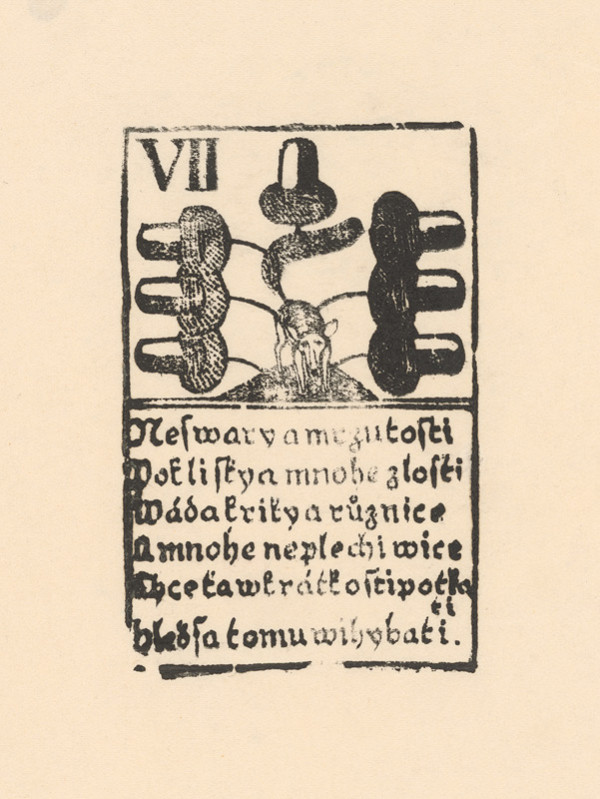 VII
Neſwary a mrzutoſti
Wokliſky a mnohe zloſti
Wáda křiky a růžnice
A mnohe neplechi wice
Chce ťa w krátkoſti potka
ti
hleď ſa tomu wihybati.